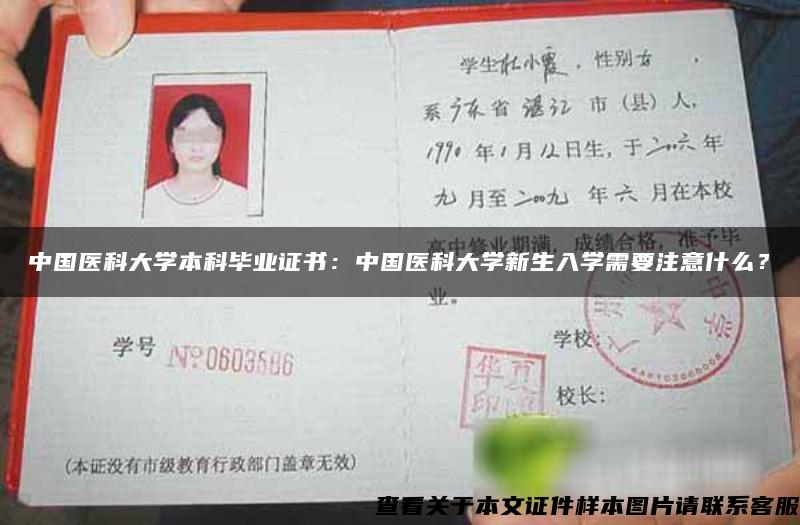 学生杜小霞，性别女，
系广东省湛江市（县）人，
1990年1月12日生，于二〇〇六年
九月至二〇〇九年六月在本校
高中修业期满，成绩合格，准予毕
中国医科大学本科毕业证书：中国医科大学新生入学需要注意什么？
业。
学校：
学号 №0603586
校长：
华夏
印
(本证没有市级教育行政部门盖章无效)
查看关于本文证件样本图片请联系客服